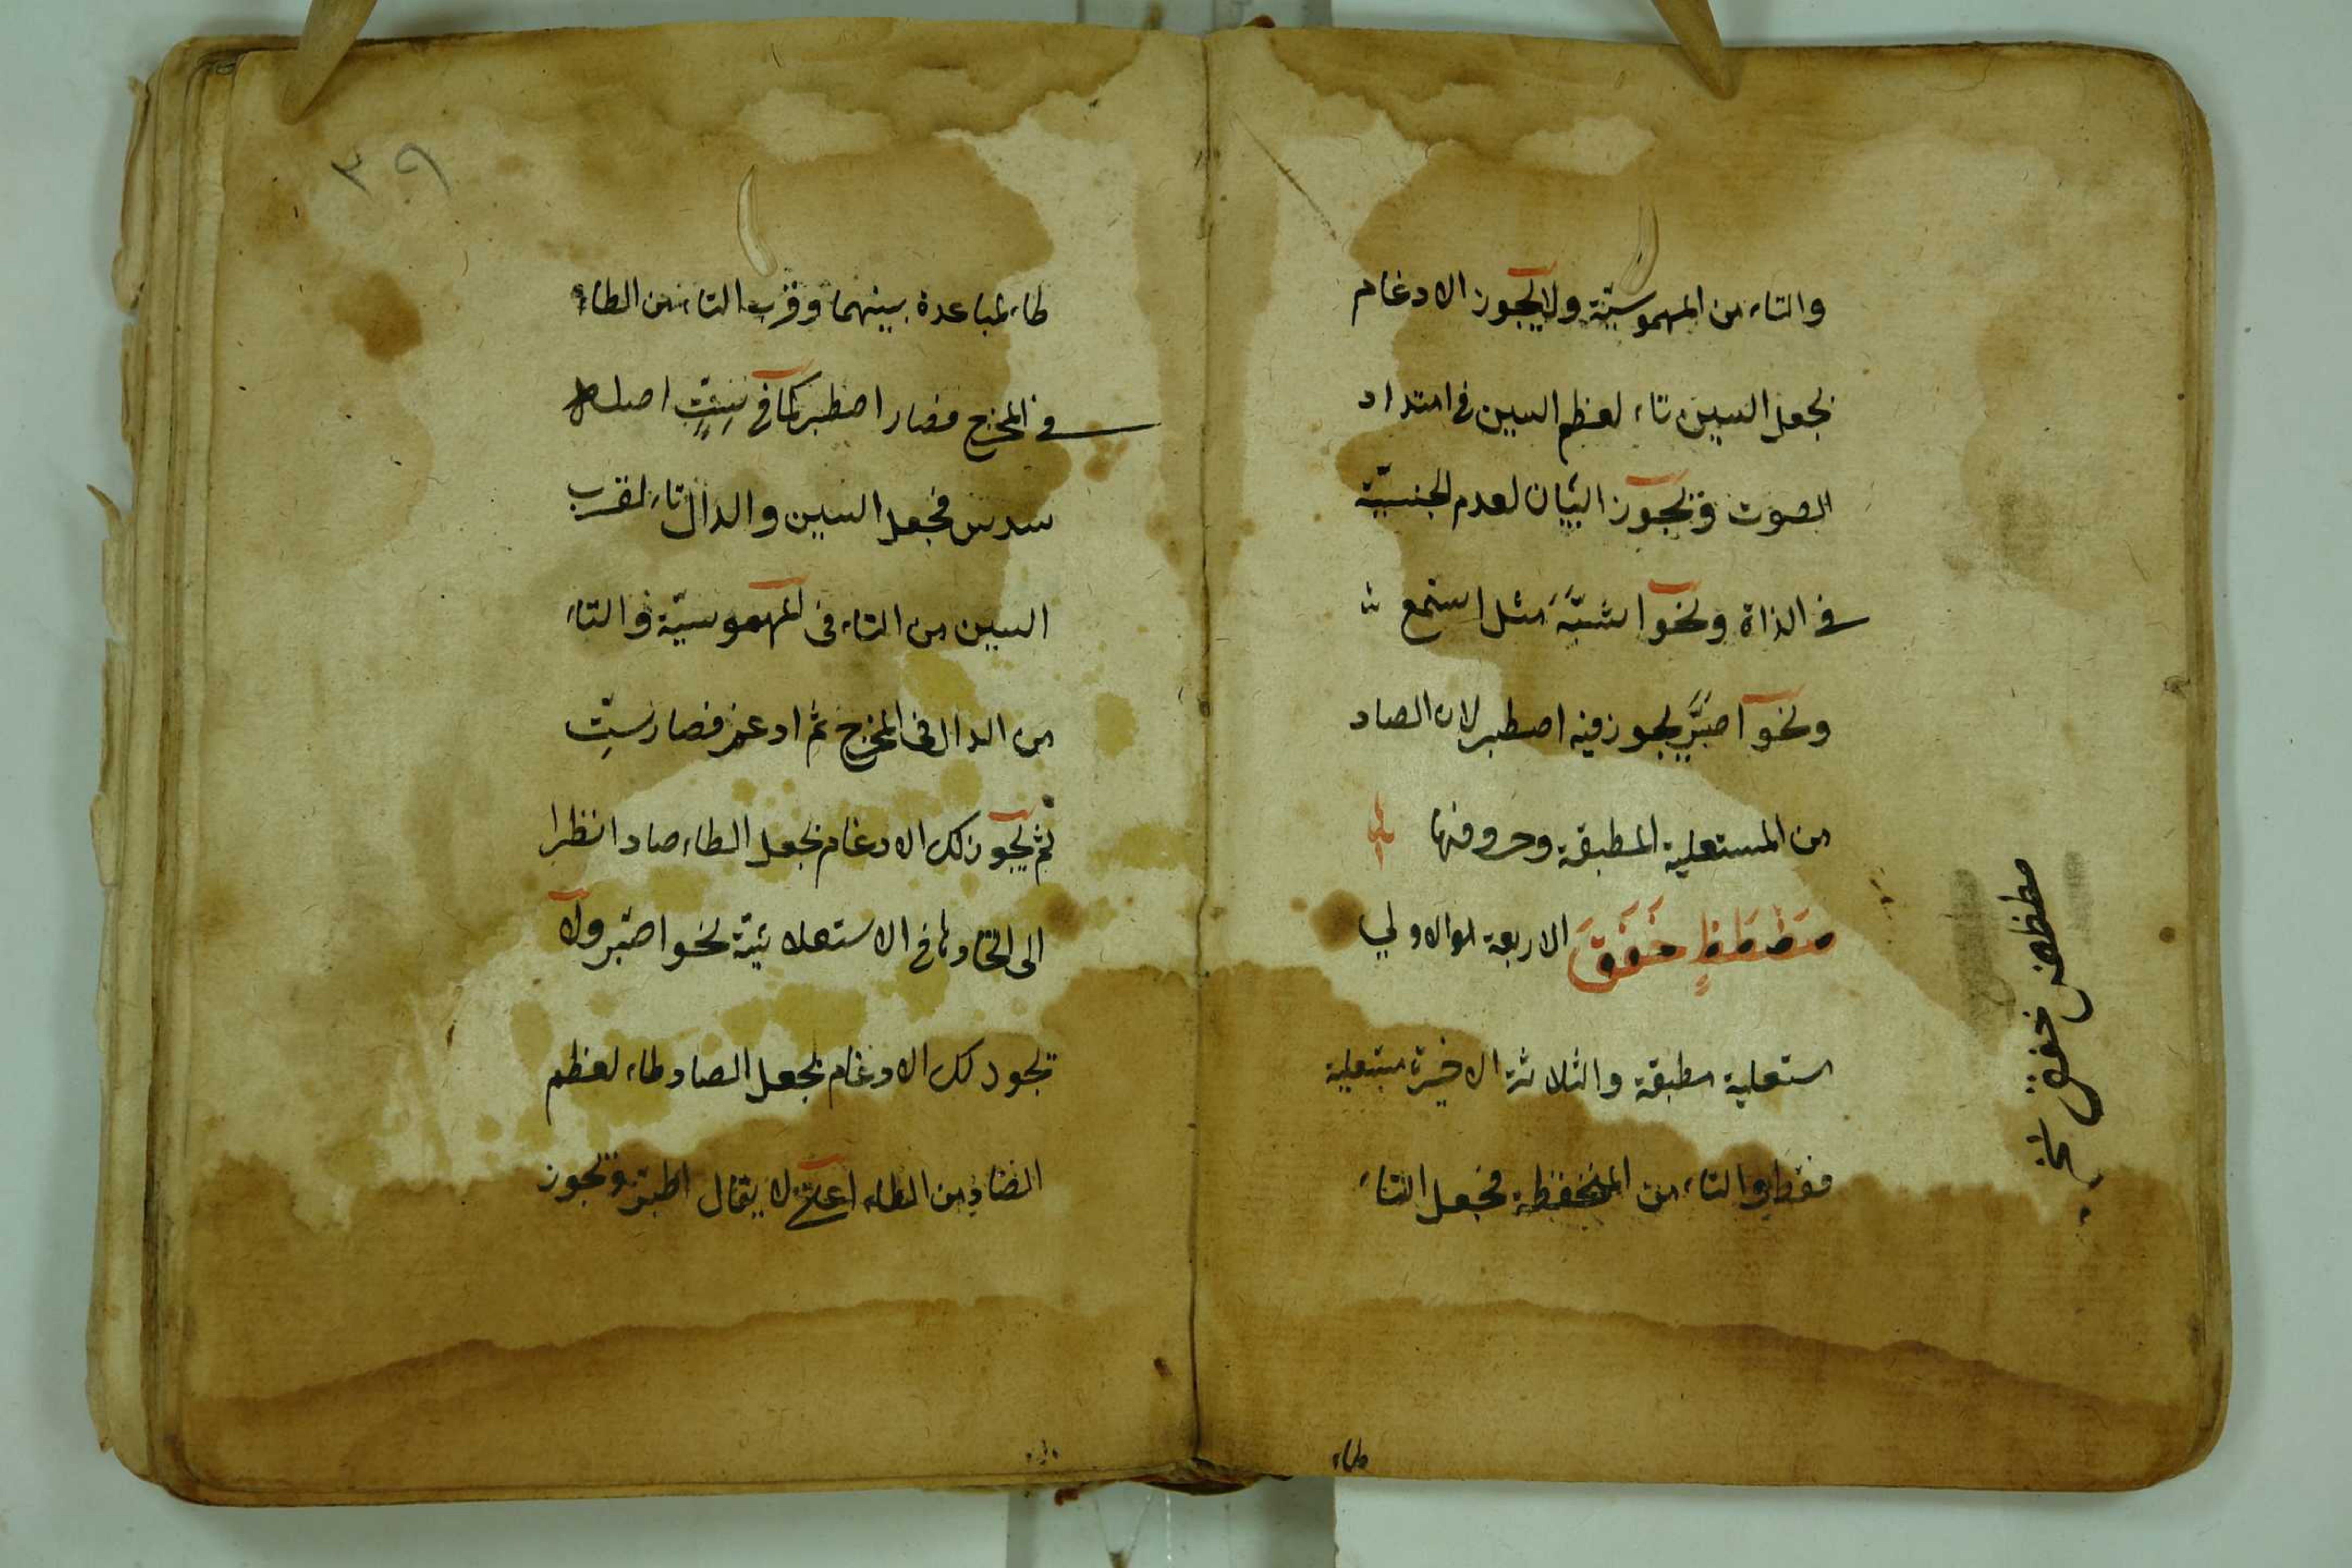 والتاء من المهموسيّة ولا يجوز الادغام
بجعل السين تاء لعظم السين في امتداد
الصوت ويجوز البيان لعدم الجنسيّة
في الذاة ونحو اشبّه مثل استمع
ونحو اصّبر يجوز فيه اصطبر لان الصاد
من المستعلية المطبقة وحروفها
صَضَطَظٍ خَغَقَ الاربعة الاولي
مستعلية مطبقة والثلاثة الاخيرة مستعلية
فقط والتاء من المنخفظة فجعل التاء
طاء
صطظض خغق
طاء لمباعدة بينهما وقرب التاء من الطاء
في المخرج فصار اصطبر كما في سِتٍّ اصله
سدس فجعل السين والدال تاء لقرب
السين من التاء في المهموسيّة والتاء
من الدال في المخرج ثم ادغم فصار ستٍّ
ثم يجوز لك الادغام بجعل الطاء صادا نظرا
الى اتحادهما في الاستعلائيّة نحو اصّبر ولا
يجوز لك الادغام بجعل الصاد طاء لعظم
الصاد من الطاء اعنى لا يقال اطّبر ويجوز
٣٩